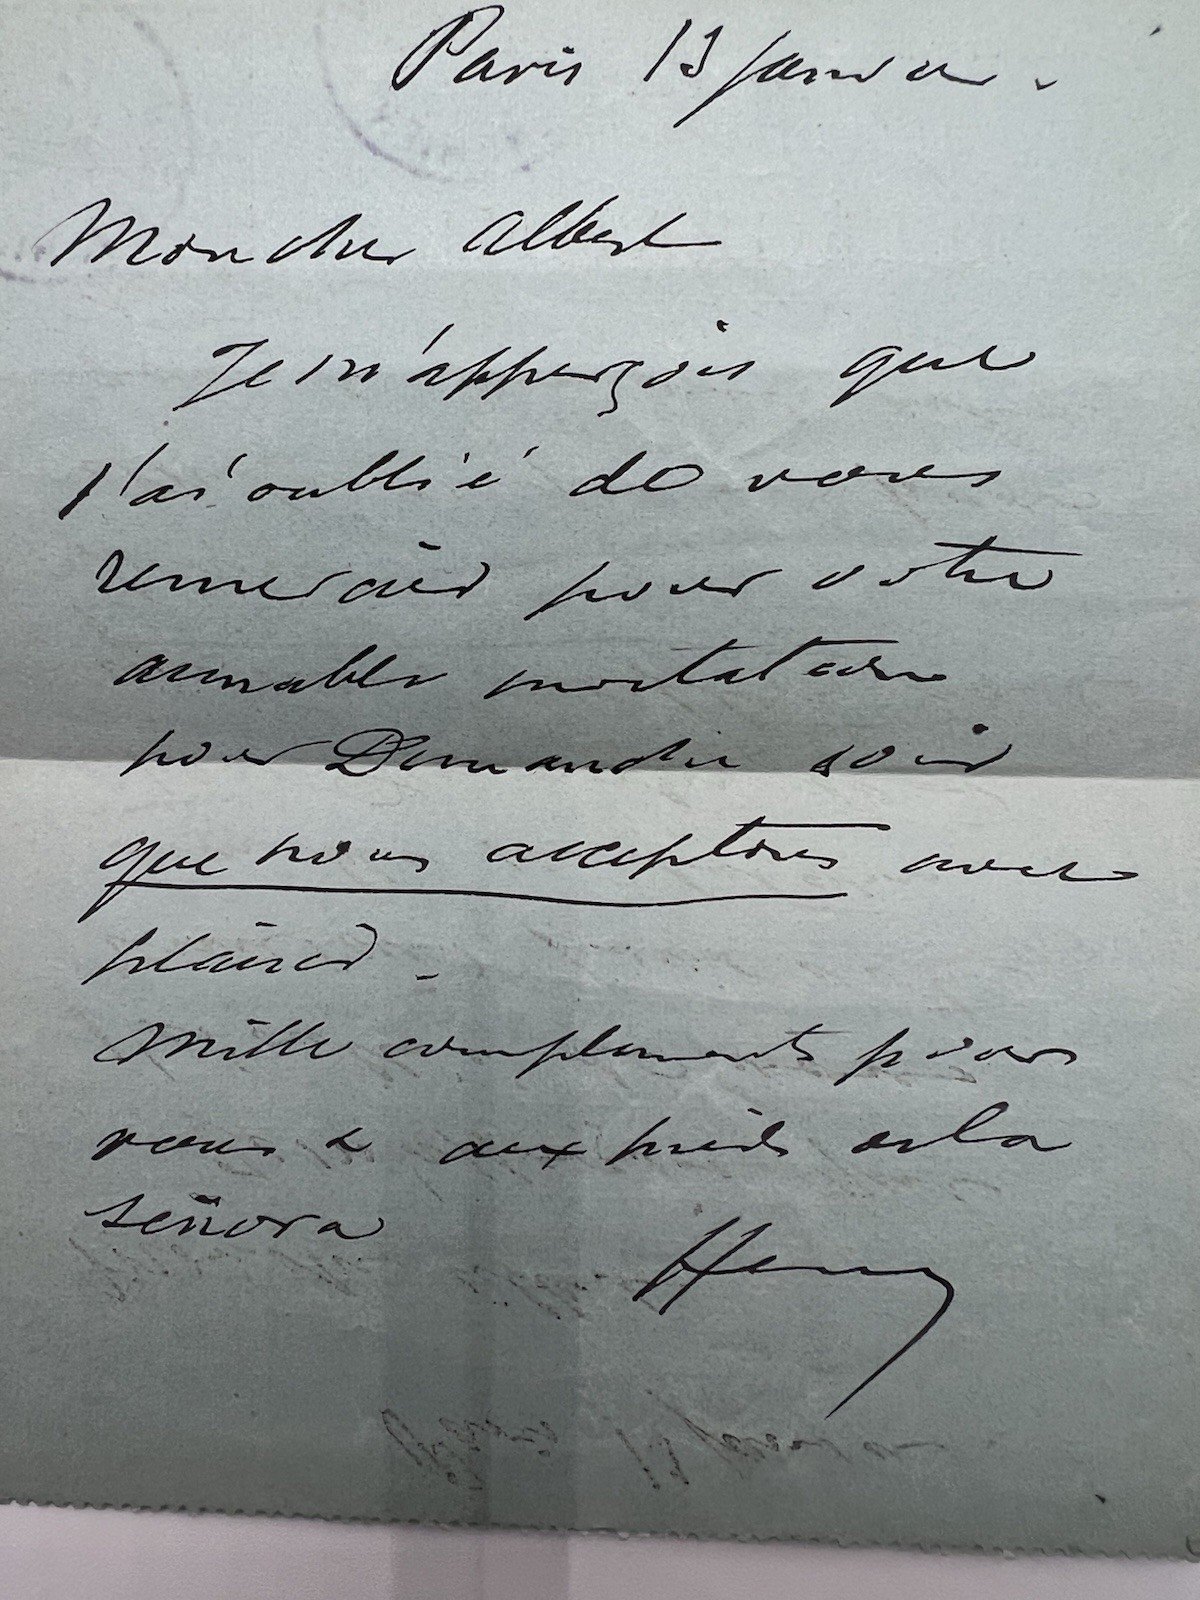 Paris 13 Janvier.
Mon cher Albert
Je m'apperçois que
j'ai oublié de vous
remercier pour votre
aimable invitation
pour Dimanche soir
que nous acceptons avec
plaisir.
Mille compliments pour
vous & aux pieds de la
señora
Henry